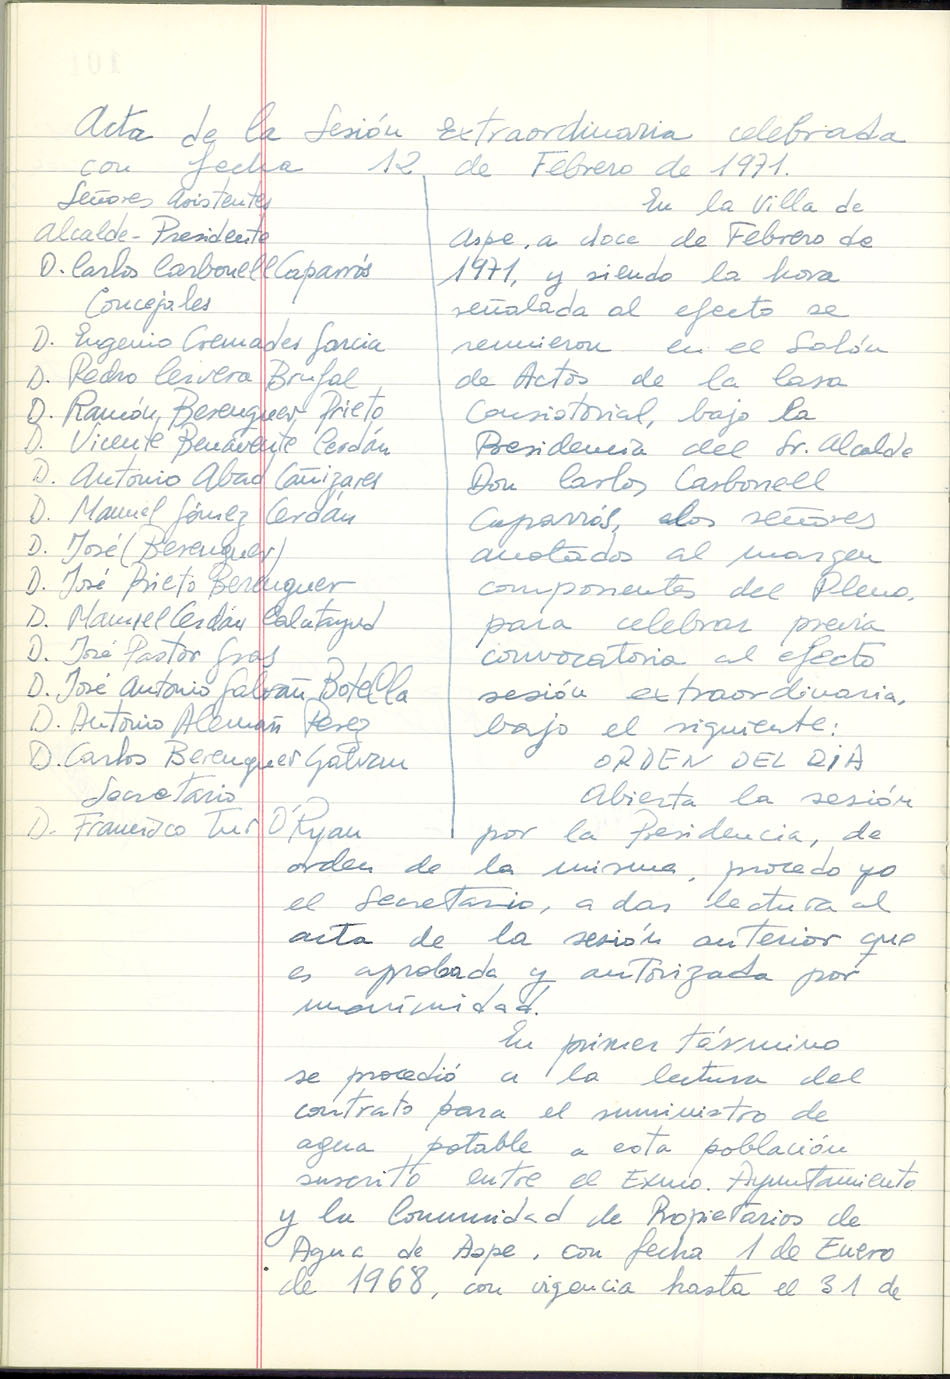 Acta de la Sesión Extraordinaria celebrada
con fecha 12 de Febrero de 1971.
Señores Asistentes
Alcalde-Presidente
D. Carlos Carbonell Caparrós
Concejales
D. Eugenio Cremades Garcia
D. Pedro Cervera Brufal
D. Ramón Berenguer Prieto
D. Vicente Benavente Cerdán
D. Antonio Abad Cañizares
D. Manuel Gómez Cerdán
D. José (Berenguer)
D. José Prieto Berenguer
D. Manuel Cerdán Calatayud
D. José Pastor Gras
D. José Antonio Galvañ Botella
D. Antonio Alemañ Perez
D. Carlos Berenguer Galvañ
Secretario
D. Francisco Tur O'Ryan
En la Villa de
Aspe, a doce de Febrero de
1971, y siendo la hora
señalada al efecto se
reunieron en el Salón
de Actos de la Casa
Consistorial, bajo la
Presidencia del Sr. Alcalde
Don Carlos Carbonell
Caparrós, los señores
anotados al margen
componentes del Pleno,
para celebrar previa
convocatoria al efecto
sesión extraordinaria,
bajo el siguiente:
ORDEN DEL DIA
Abierta la sesión
por la Presidencia, de
orden de la misma, procedo yo
el Secretario, a dar lectura al
acta de la sesión anterior que
es aprobada y autorizada por
unanimidad.
En primer término
se procedió a la lectura del
contrato para el suministro de
agua potable a esta población
suscrito entre el Exmo. Ayuntamiento
y la Comunidad de Propietarios de
Agua de Aspe, con fecha 1 de Enero
de 1968, con vigencia hasta el 31 de